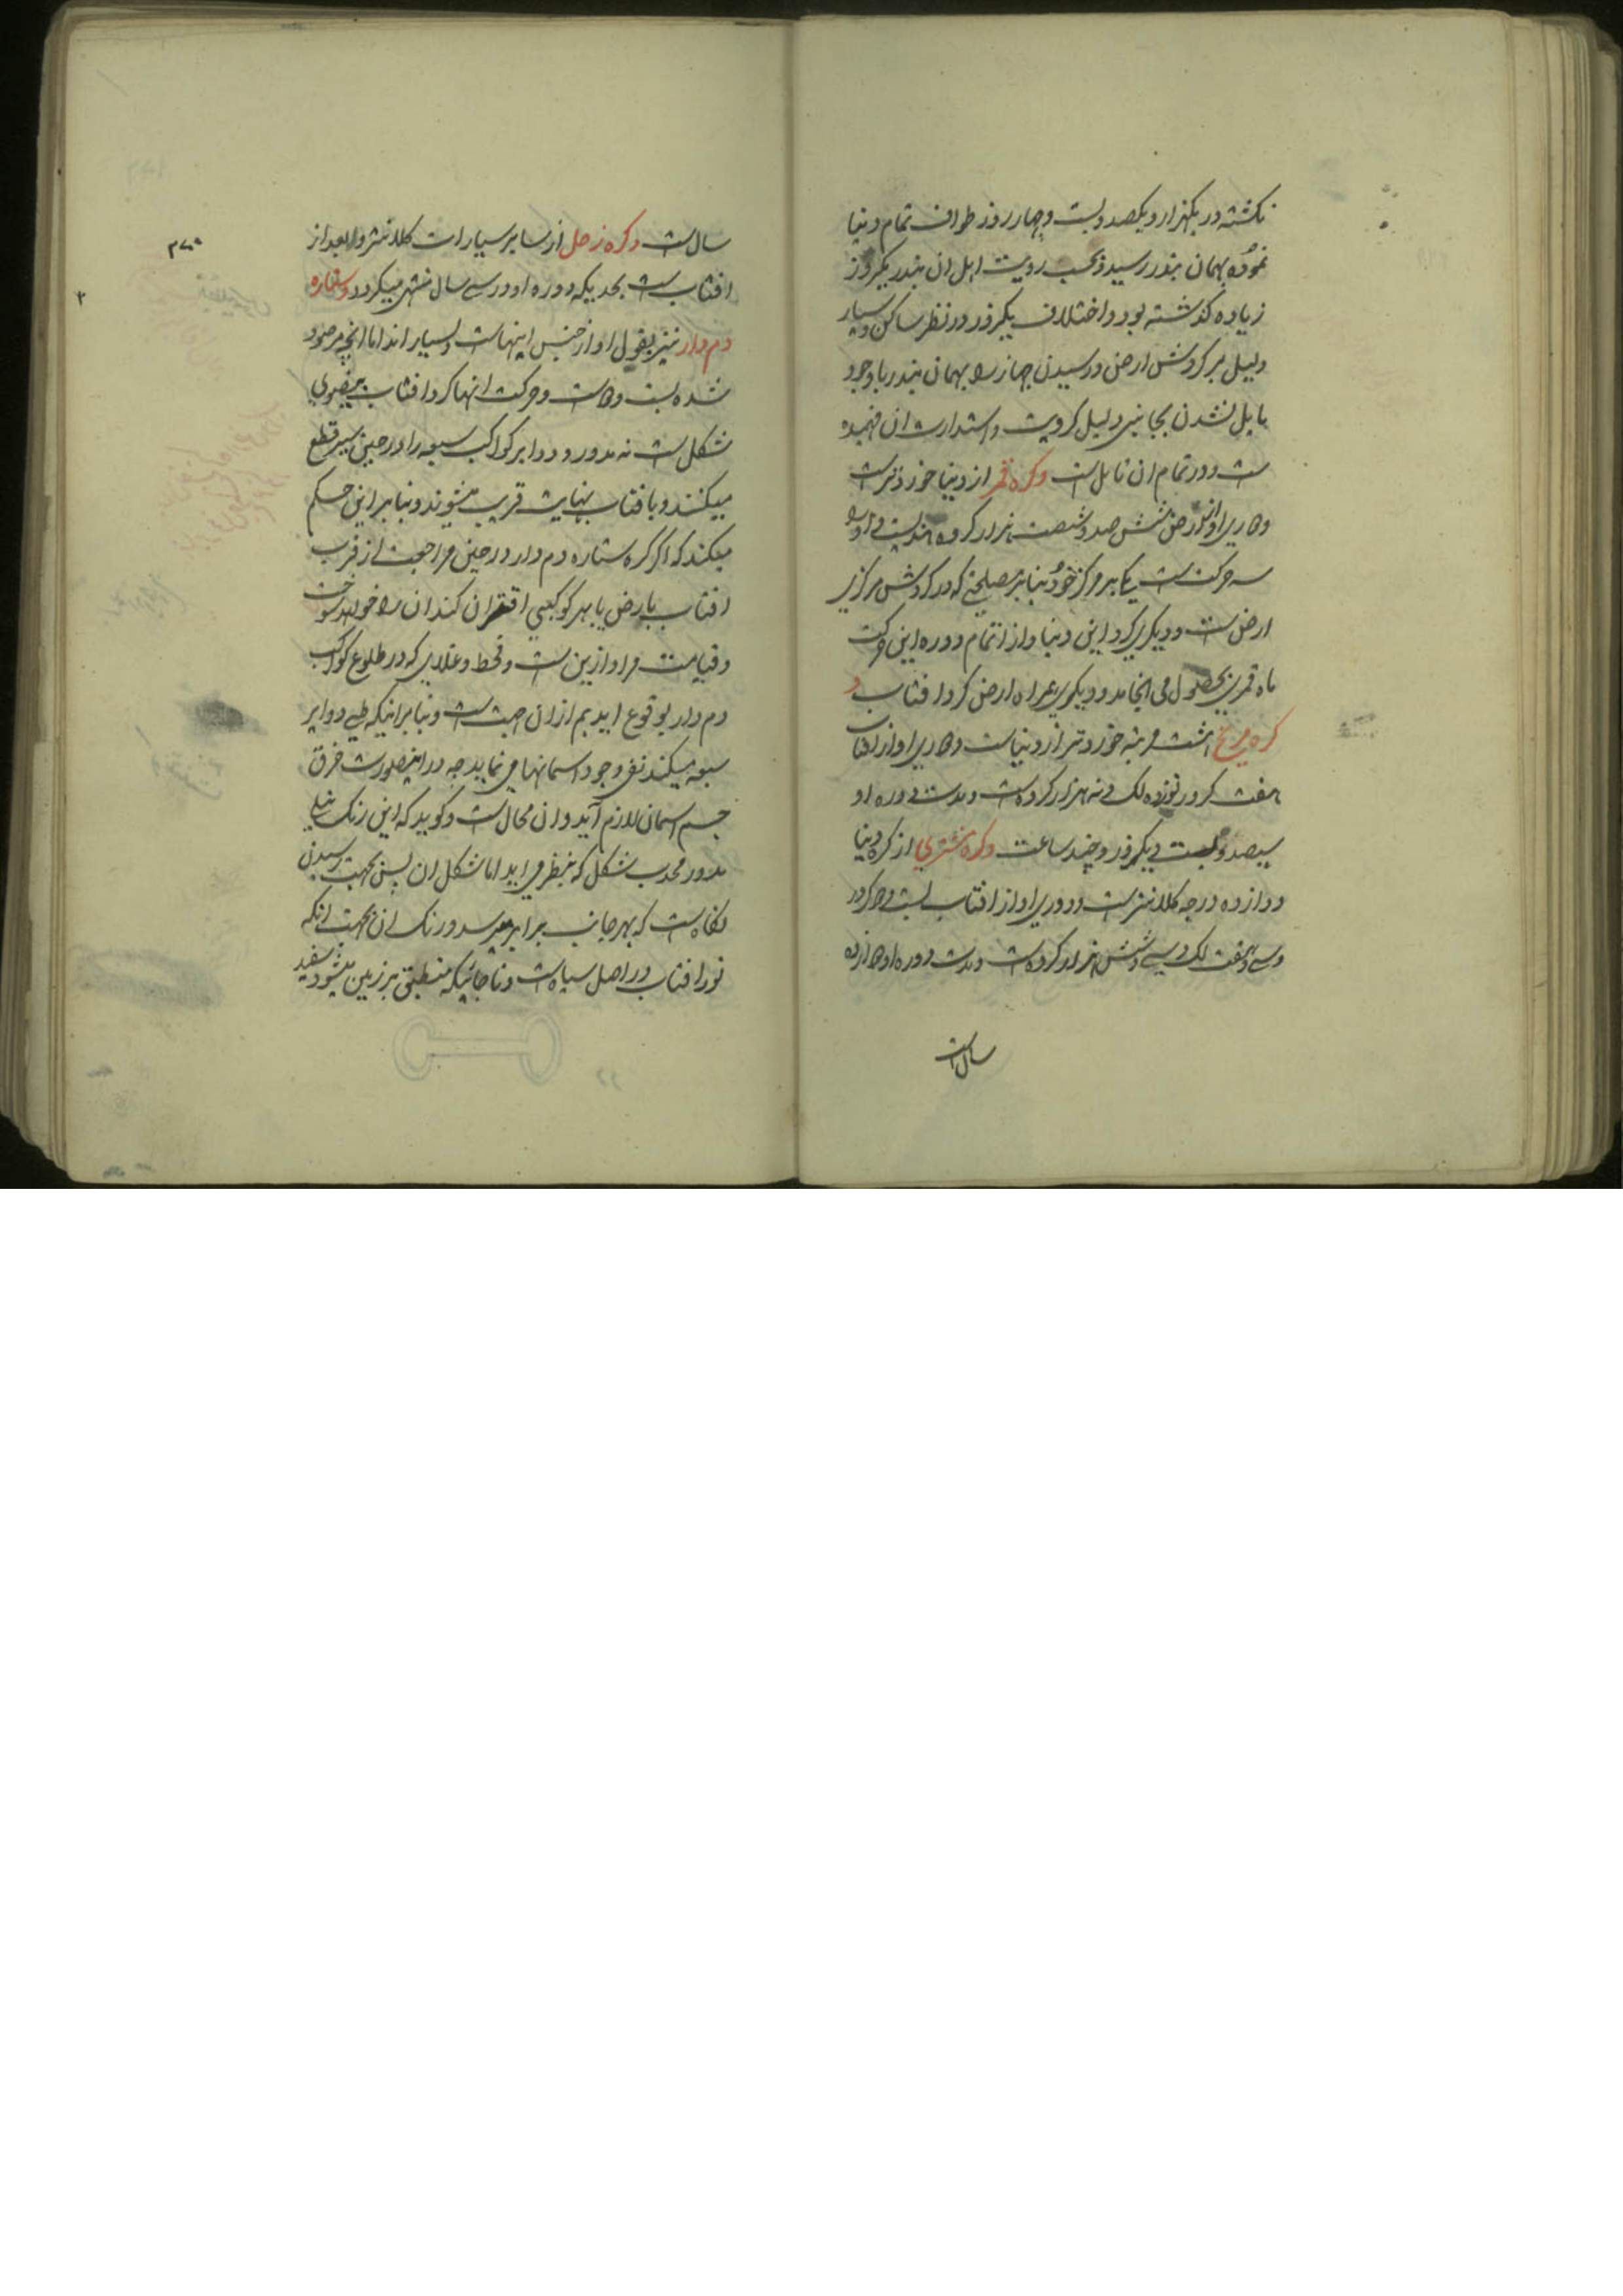 نکشته در یکهزار و یکصد و بست و چهار روز طواف تمام دنیا
نموده بهمان بندر رسید و بحسب رویت اهل ان بندر یکروز
زیاده کذشته بود و اختلاف یکروز در نظر ساکن و سیار
دلیل بر کردش ارض و رسیدن جهاز را بهمان بندر باوجود
مایل نشدن بجانبی دلیل کرویت و استدارت ان فهمیده
است و در تمام ان قایل است وکره قمر از دنیا خوردتر است
و دوری او از ارض شش صد و شصت هزار کروه هندیست و او را
سه حرکت است یکی بر مرکز خود بنابر مصلحتی که در کردش مرکزی
ارض است و دیکری کرد این دنیا و از اتمام دوره این حرکت
ماه قمری بحصول می انجامد و دیکری همراه ارض کرد افتاب و
کره مریخ هشت مرتبه خوردتر از دنیاست و دوری او از افتاب
هفت کرور نوزده لک و نه هزار کروه است و مدت دوره او
سیصد و بست و یکروز و چند ساعت وکره مشتری از کره دنیا
دوازده درجه کلانتر است و دوری او از افتاب بست و دو کرور
و سی و هفت لک و سی و شش هزار کروه است و مدت دوره او دوازده
سال است
سال است وکره زحل از سایر سیارات کلانتر و ابعد از
افتاب است بحدیکه دوره او در سی سال منتهی میکردد و ستاره
دم دار نیز بقول او از جنس اینهاست و بسیار اند اما انچه مرصود
شده بست و دو است و حرکت انها کرد افتاب بیضوی
شکل است نه مدور و دوایر کواکب سبعه را در حین سیر قطع
میکنند و با فتاب بنهایت قریب میشوند و بنابر این حکم
میکند که اکر کره ستاره دم دار در حین مراجعت از قرب
افتاب بارض یا بهر کوکبی اقتران کند ان را خواهد سوخت
و قیامت مراد ازین است و قحط و غلای که در طلوع کواکب
دم دار بوقوع اید هم از ان جهت است و بنابر اینکه طی دوایر
سبعه میکنند نفی وجود اسمانها می نماید چه در اینصورت خرق
جسم اسمان لازم آید و ان محال است و کوید که این رنک نیلی
مدور محدب شکل که بنظر می اید اما شکل ان پس بجهت رسیدن
نکاه است که بهر جانب برابر میرسد و رنک ان بجهت انکه
نور افتاب در اصل سیاه است و تا جائیکه منطبق بر زمین میشود سفید